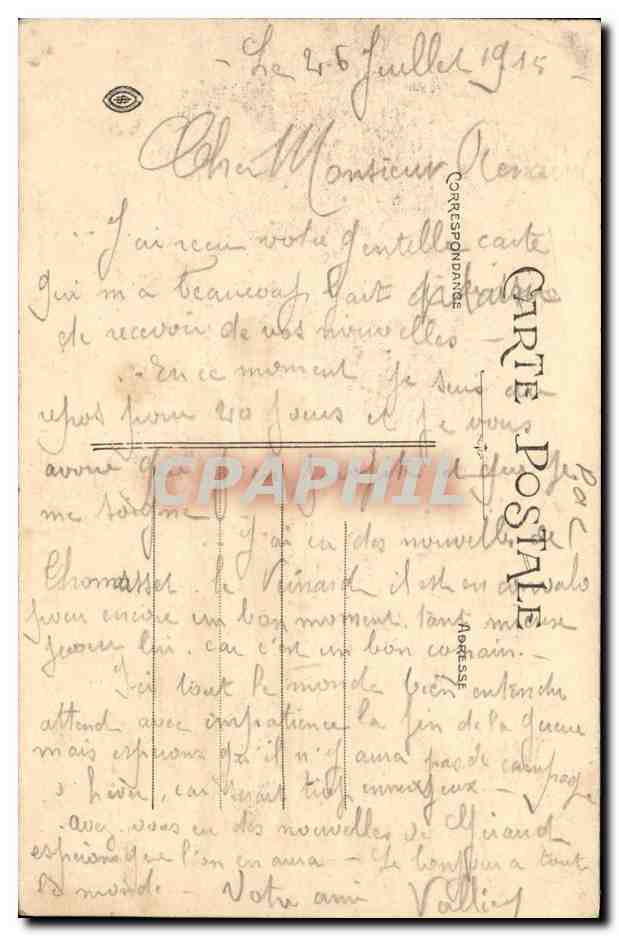 - Le 26 Juillet 1915 -
Cher Monsieur
J'ai recu votre gentelle carte
qui m'a beaucoup fait
de recevoir de vos nouvelles -
En ce moment je suis au
repos pour 20 jours et je vous
avoue que
me soigne
j'ai eu des nouvelles de
Thomasset le Veinard il est en convalo
pour encore un bon moment, tant mieux
pour lui car c'est un bon copain. -
Ici tout le monde bien entendu
attend avec impatience la fin de la guerre
mais espérons qu'il n'y aura pas de campagne
d'hiver, car serait trop ennuyeux -
avez vous eu des nouvelles de Giraud
espérons que l'on en aura - Le bonjour a tout
le monde - Votre ami
CORRESPONDANCE
CARTE POSTALE
ADRESSE
CPAPHIL